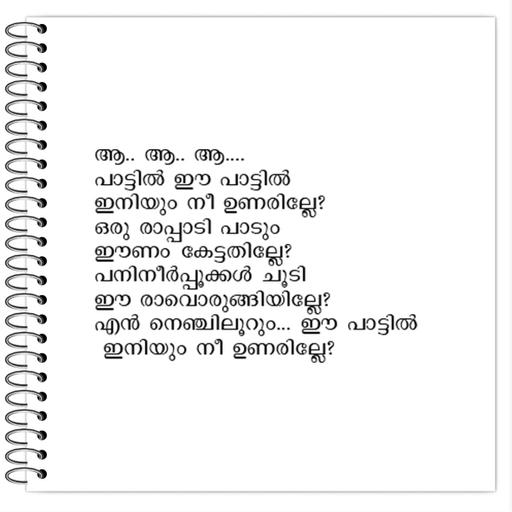 ആ.. ആ.. ആ....
പാട്ടിൽ ഈ പാട്ടിൽ
ഇനിയും നീ ഉണരില്ലേ?
ഒരു രാപ്പാടി പാടും
ഈണം കേട്ടതില്ലേ?
പനിനീർപ്പൂക്കൾ ചൂടി
ഈ രാവൊരുങ്ങിയില്ലേ?
എൻ നെഞ്ചിലൂറും... ഈ പാട്ടിൽ
ഇനിയും നീ ഉണരില്ലേ?